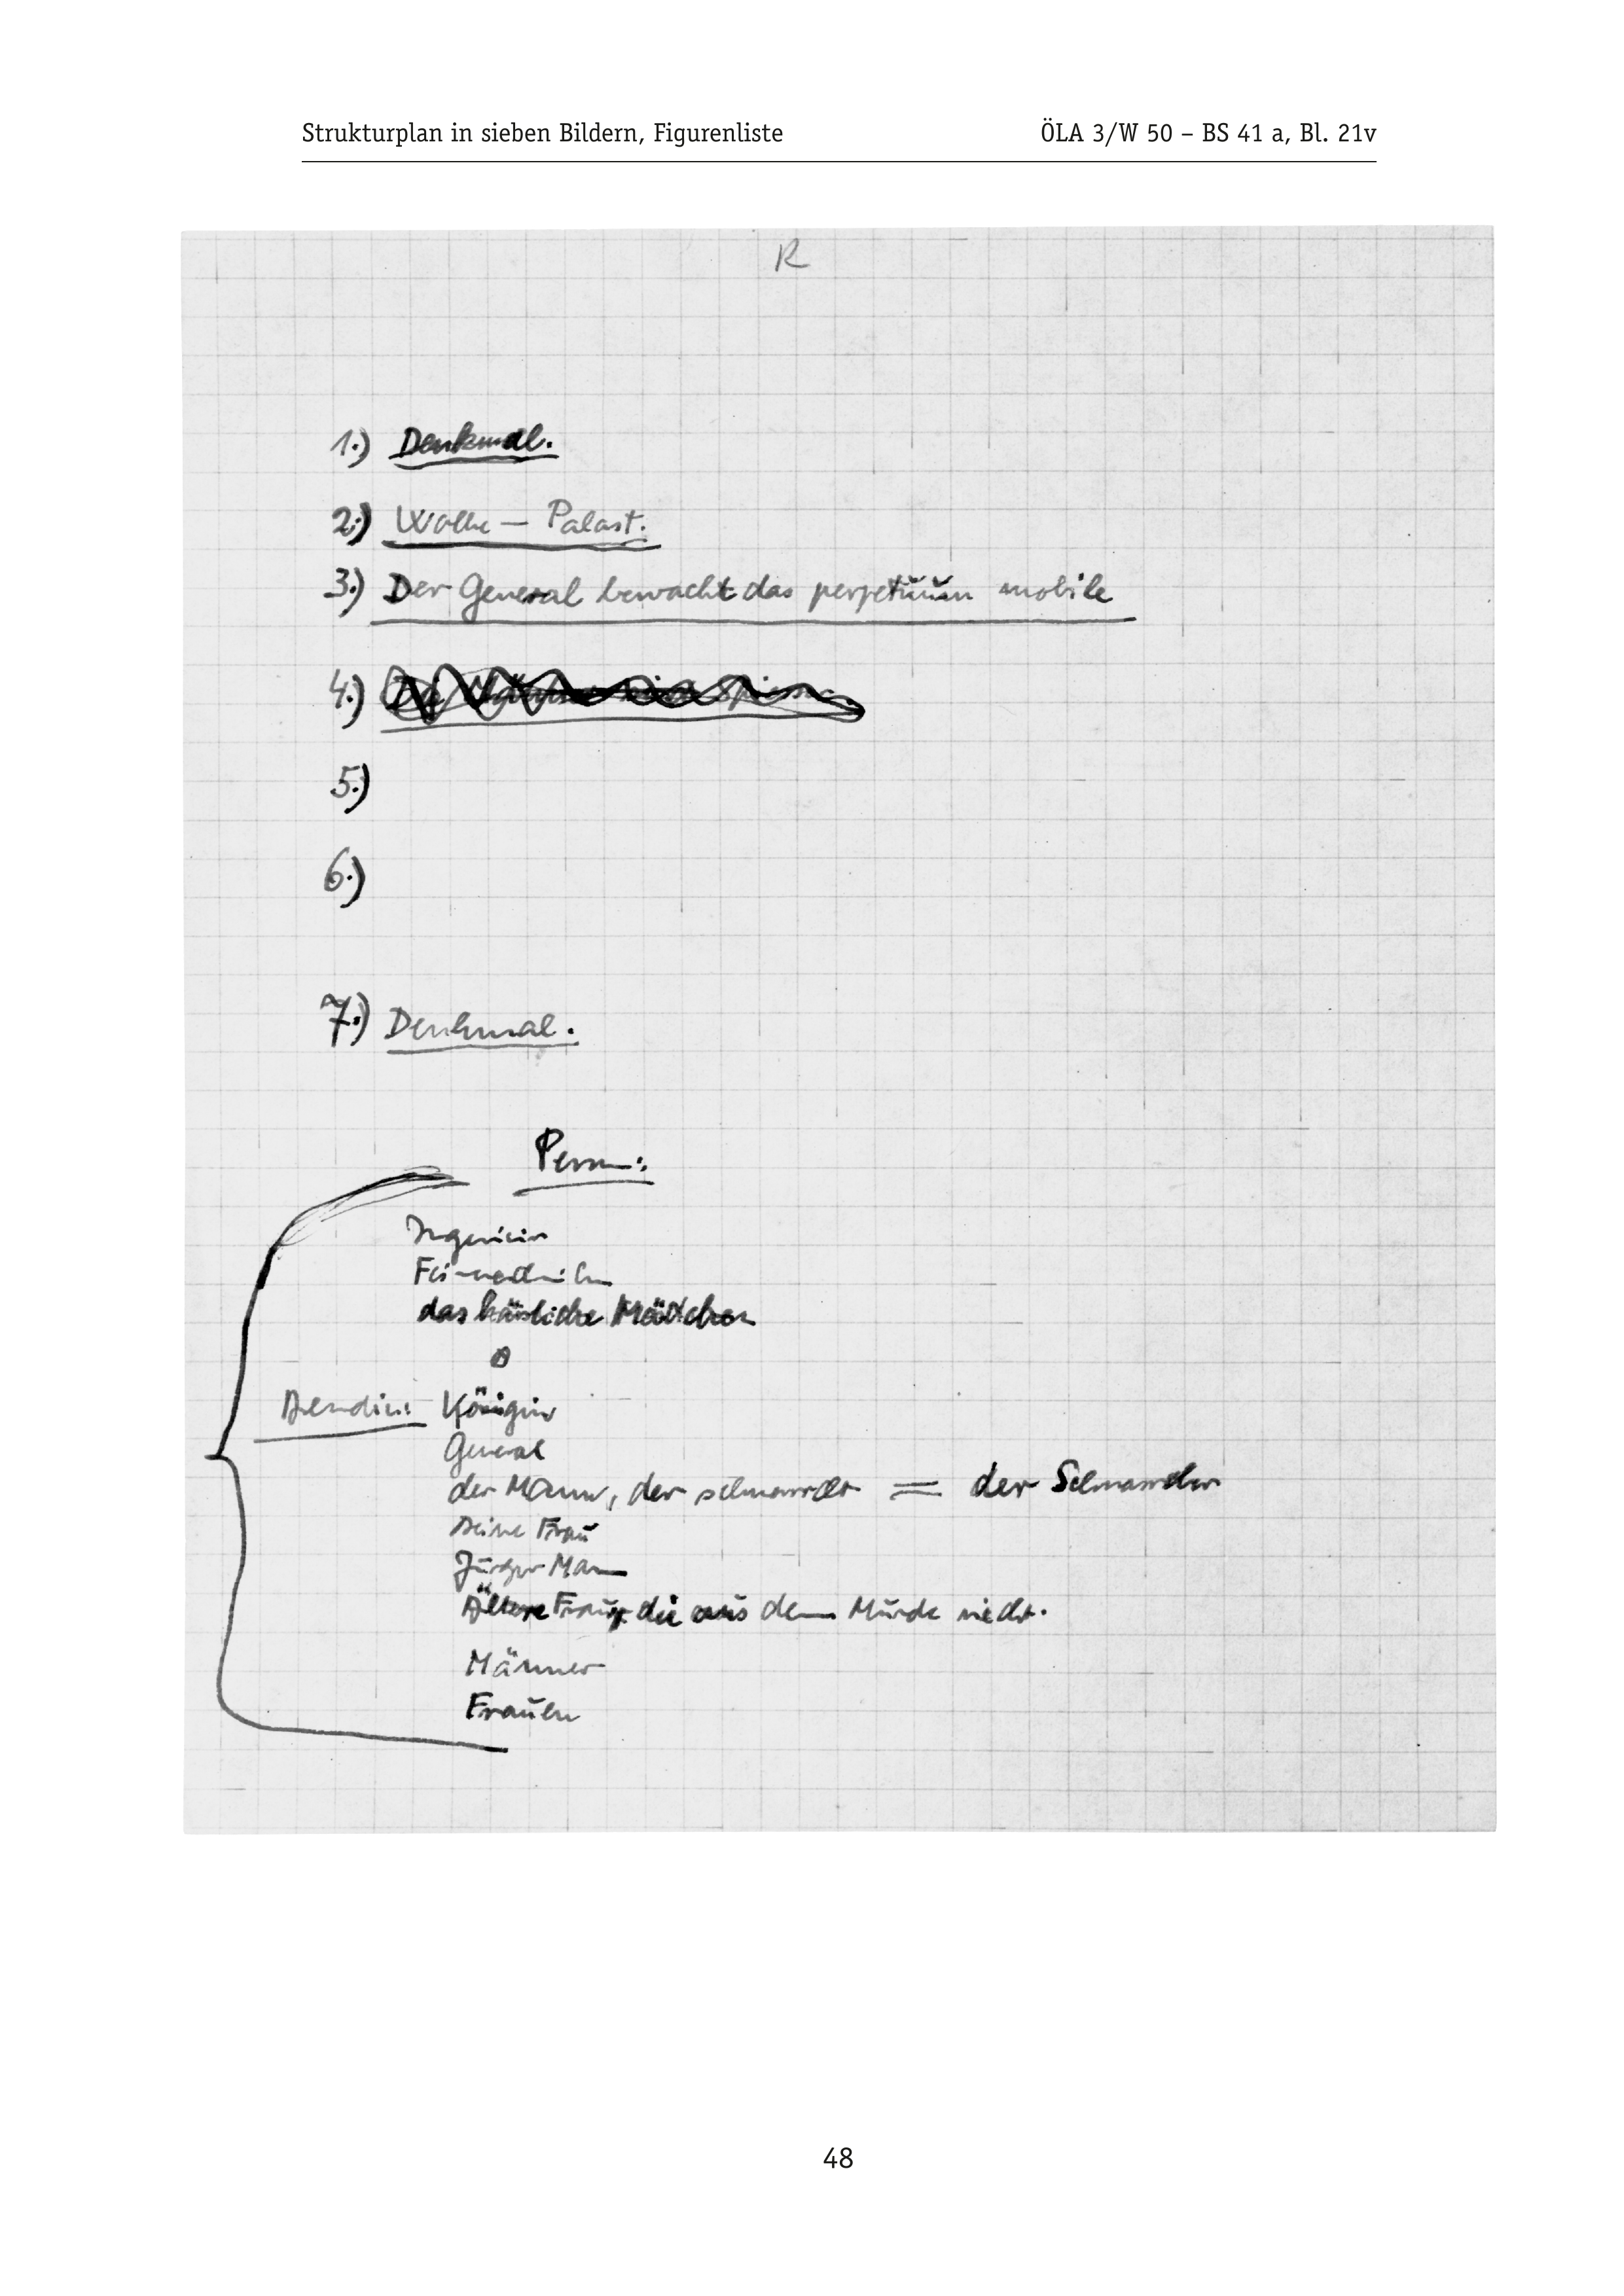 Strukturplan in sieben Bildern, Figurenliste ÖLA 3/W 50 – BS 41 a, Bl. 21v
R
1.) Denkmal.
2.) Wolke – Palast.
3.) Der General bewacht das perpetuum mobile
4.)
5.)
6.)
7.) Denkmal.
Person:
Ingenieur
das hässliche Mädchen
Königin
General
der Mann, der schnarcht = der Schnarcher
Seine Frau
Junger Mann
Ältere Frau, die aus dem Munde riecht.
Männer
Frauen
48